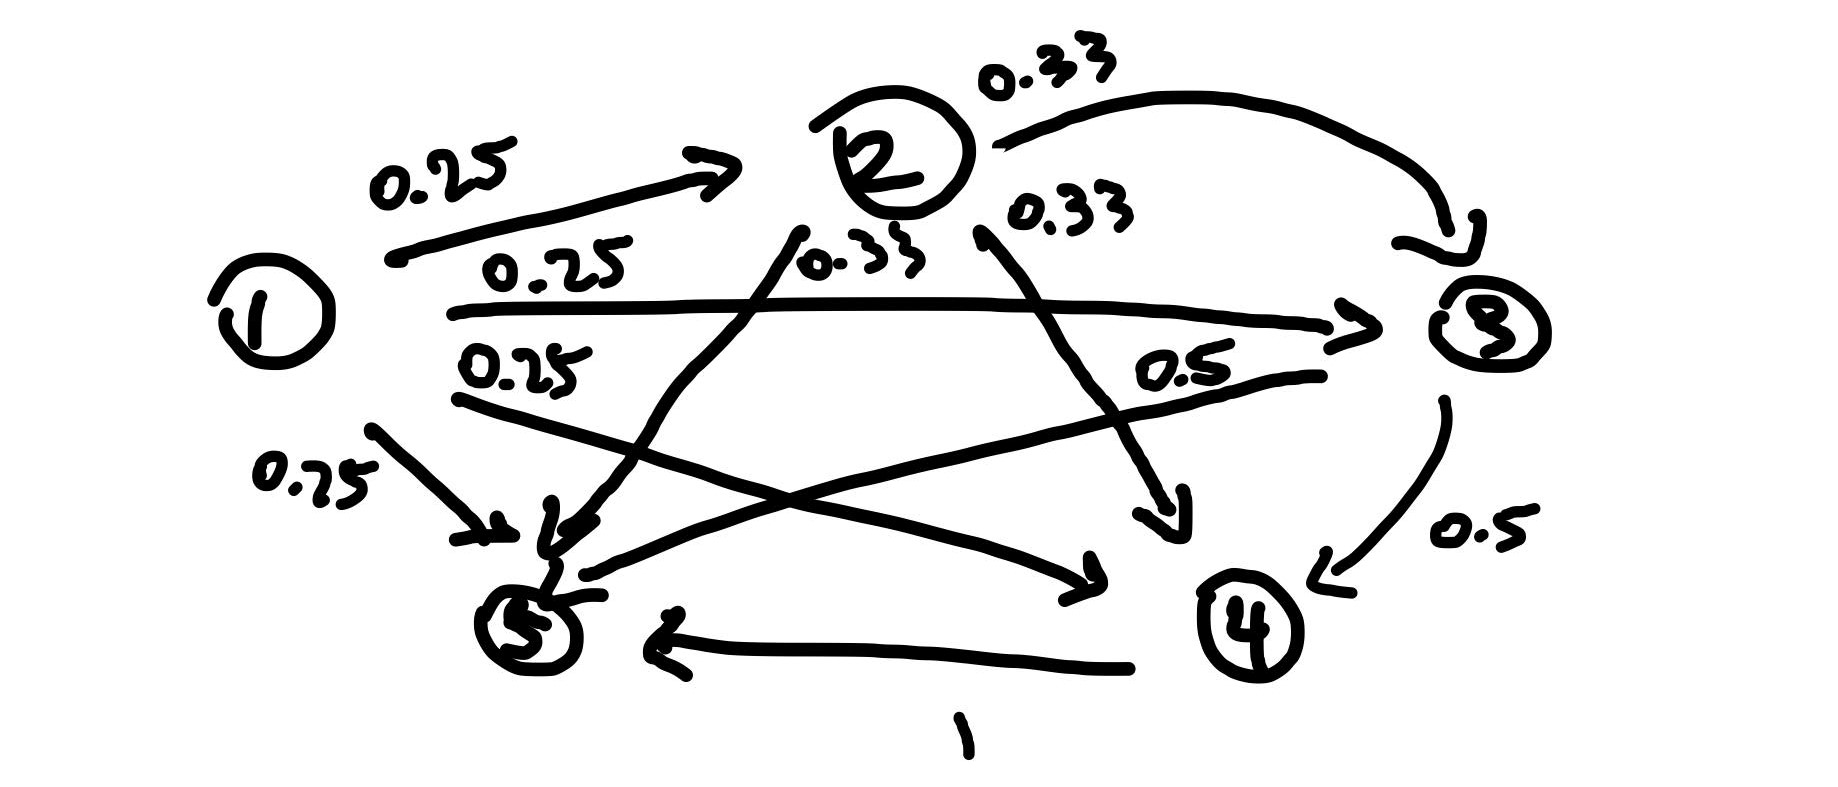 0.33
2
0.25
0.33
0.33
0.25
1
3
0.25
0.5
0.25
0.5
5
4
1